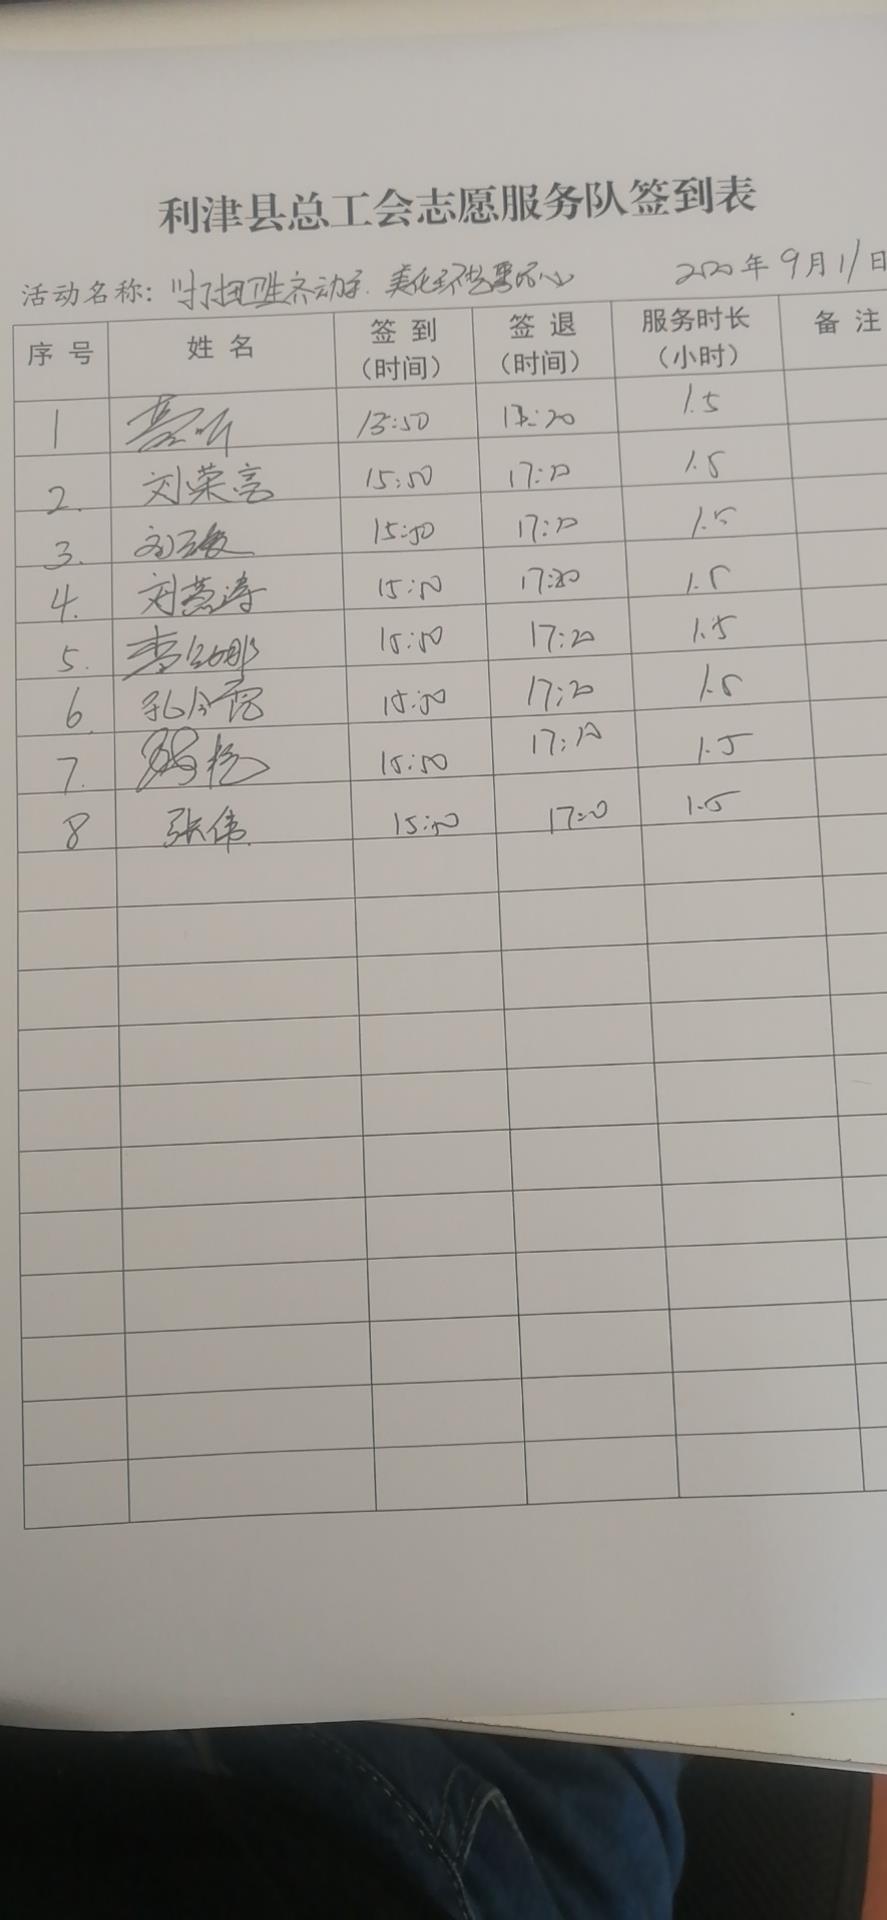 利津县总工会志愿服务队签到表
活动名称：打扫卫生齐动手 美化环境要齐心 2020年9月11日
序号 姓名 签到（时间） 签退（时间） 服务时长（小时） 备注
1 15:50 17:20 1.5
2. 刘荣亮 15:50 17:20 1.5
3. 15:50 17:20 1.5
4. 刘慧涛 15:50 17:20 1.5
5. 李 娜 15:50 17:20 1.5
6. 孔令 15:50 17:20 1.5
7. 15:50 17:20 1.5
8 张伟 15:50 17:20 1.5